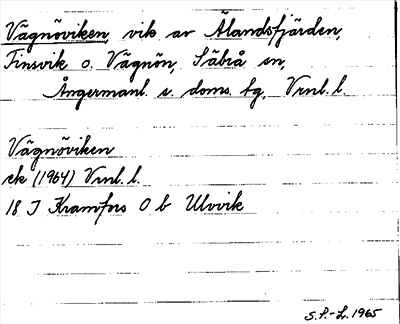 Vägnöviken, vik av Ålandsfjärden,
Finsvik o. Vägnön, Säbrå sn,
Ångermanl. s. doms. tg, Vrnl. l.
Vägnöviken
ek (1964) Vrnl. l.
18 I Kramfors O b Ulvvik
S.P.-L. 1965